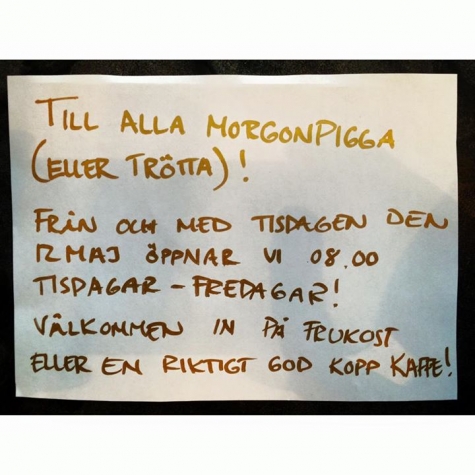 TILL ALLA MORGONPIGGA
(ELLER TRÖTTA)!
FRÅN OCH MED TISDAGEN DEN
12 MAJ ÖPPNAR VI 08.00
TISDAGAR - FREDAGAR!
VÄLKOMMEN IN PÅ FRUKOST
ELLER EN RIKTIGT GOD KOPP KAFFE!